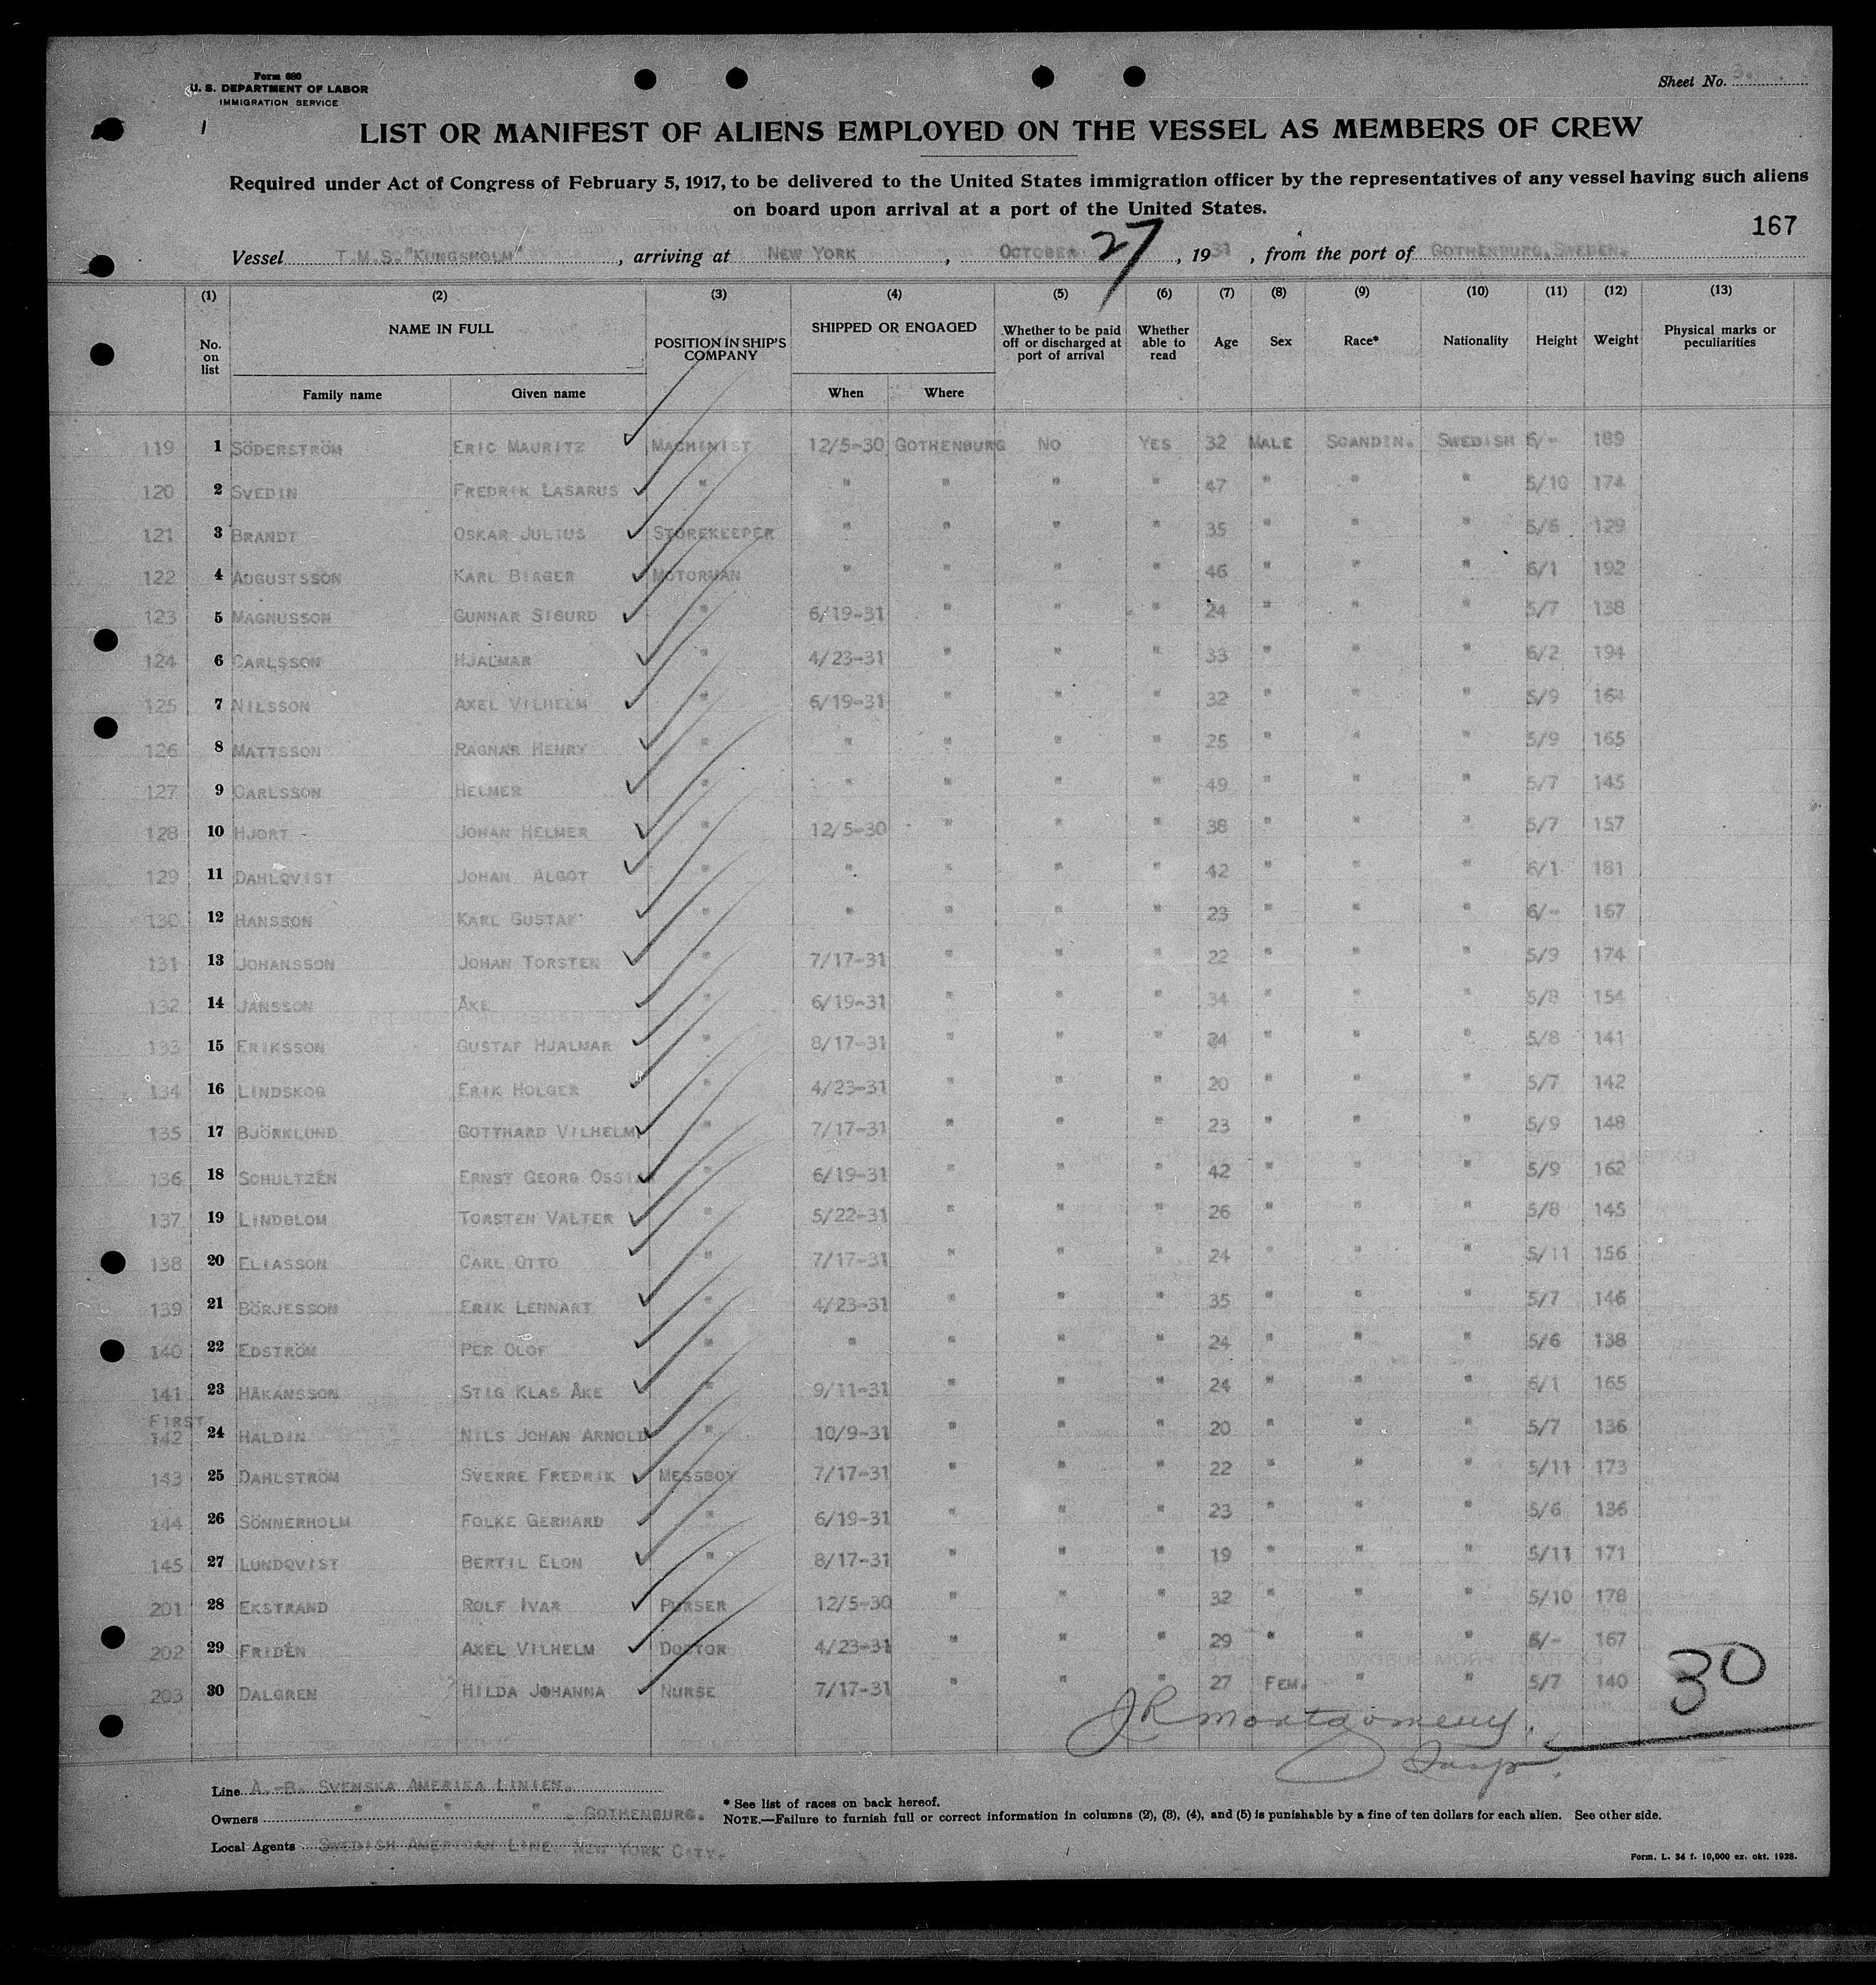 Form 680
U. S. DEPARTMENT OF LABOR
IMMIGRATION SERVICE
Sheet No.
LIST OR MANIFEST OF ALIENS EMPLOYED ON THE VESSEL AS MEMBERS OF CREW
Required under Act of Congress of February 5, 1917, to be delivered to the United States immigration officer by the representatives of any vessel having such aliens
on board upon arrival at a port of the United States.
167
Vessel T.M.S. "KUNGSHOLM", arriving at NEW YORK, OCTOBER 27, 1931, from the port of GOTHENBURG, SWEDEN.
(1) (2) (3) (4) (5) (6) (7) (8) (9) (10) (11) (12) (13)
No. on list NAME IN FULL POSITION IN SHIP'S COMPANY SHIPPED OR ENGAGED Whether to be paid off or discharged at port of arrival Whether able to read Age Sex Race* Nationality Height Weight Physical marks or peculiarities
Family name Given name When Where
119 1 SÖDERSTRÖM ERIC MAURITZ MACHINIST 12/5-30 GOTHENBURG NO YES 32 MALE SCANDIN. SWEDISH 6/- 189
120 2 SVEDIN FREDRIK LASARUS " " " " " 47 " " " 5/10 174
121 3 BRANDT OSKAR JULIUS STOREKEEPER " " " " 35 " " " 5/6 129
122 4 AUGUSTSSON KARL BIRGER MOTORMAN " " " " 46 " " " 6/1 192
123 5 MAGNUSSON GUNNAR SIGURD " 6/19-31 " " " 24 " " " 5/7 138
124 6 CARLSSON HJALMAR " 4/23-31 " " " 33 " " " 6/2 194
125 7 NILSSON AXEL VILHELM " 6/19-31 " " " 32 " " " 5/9 164
126 8 MATTSSON RAGNAR HENRY " " " " " 25 " " " 5/9 165
127 9 CARLSSON HELMER " " " " " 49 " " " 5/7 145
128 10 HJORT JOHAN HELMER " 12/5-30 " " " 38 " " " 5/7 157
129 11 DAHLQVIST JOHAN ALGOT " " " " " 42 " " " 6/1 181
130 12 HANSSON KARL GUSTAF " " " " " 23 " " " 6/- 167
131 13 JOHANSSON JOHAN TORSTEN " 7/17-31 " " " 22 " " " 5/9 174
132 14 JANSSON ÅKE " 6/19-31 " " " 34 " " " 5/8 154
133 15 ERIKSSON GUSTAF HJALMAR " 8/17-31 " " " " " " 5/8 141
134 16 LINDSKOG ERIK HOLGER " 4/23-31 " " " 20 " " " 5/7 142
135 17 BJÖRKLUND GOTTHARD VILHELM " 7/17-31 " " " 23 " " " 5/9 148
136 18 SCHULTZÉN ERNST GEORG " 6/19-31 " " " 42 " " " 5/9 162
137 19 LINDBLOM TORSTEN VALTER " 5/22-31 " " " 26 " " " 5/8 145
138 20 ELIASSON CARL OTTO " 7/17-31 " " " 24 " " " 5/11 156
139 21 BÖRJESSON ERIK LENNART " 4/23-31 " " " 35 " " " 5/7 146
140 22 EDSTRÖM PER OLOF " " " " " 24 " " " 5/6 138
141 23 HÅKANSSON STIG KLAS ÅKE " 9/11-31 " " " 24 " " " 6/1 165
FIRST
142 24 HALDIN NILS JOHAN ARNOLD " 10/9-31 " " " 20 " " " 5/7 136
143 25 DAHLSTRÖM SVERRE FREDRIK MESSBOY 7/17-31 " " " 22 " " " 5/11 173
144 26 SÖNNERHOLM FOLKE GERHARD " 6/19-31 " " " 23 " " " 5/6 136
145 27 LUNDQVIST BERTIL ELON " 8/17-31 " " " 19 " " " 5/11 171
201 28 EKSTRAND ROLF IVAR PURSER 12/5-30 " " " 32 " " " 5/10 178
202 29 FRIDÉN AXEL VILHELM DOCTOR 4/23-31 " " " 29 " " " 6/- 167
203 30 DALGREN HILDA JOHANNA NURSE 7/17-31 " " " 27 FEM. " " 5/7 140
30
J R Montgomery
Insp.
Line A.-B. SVENSKA AMERIKA LINIEN.
Owners " " " GOTHENBURG.
Local Agents SWEDISH AMERICAN LINE, NEW YORK CITY.
* See list of races on back hereof.
NOTE.—Failure to furnish full or correct information in columns (2), (3), (4), and (5) is punishable by a fine of ten dollars for each alien. See other side.
Form. L. 34 f. 10,000 ex. okt. 1928.